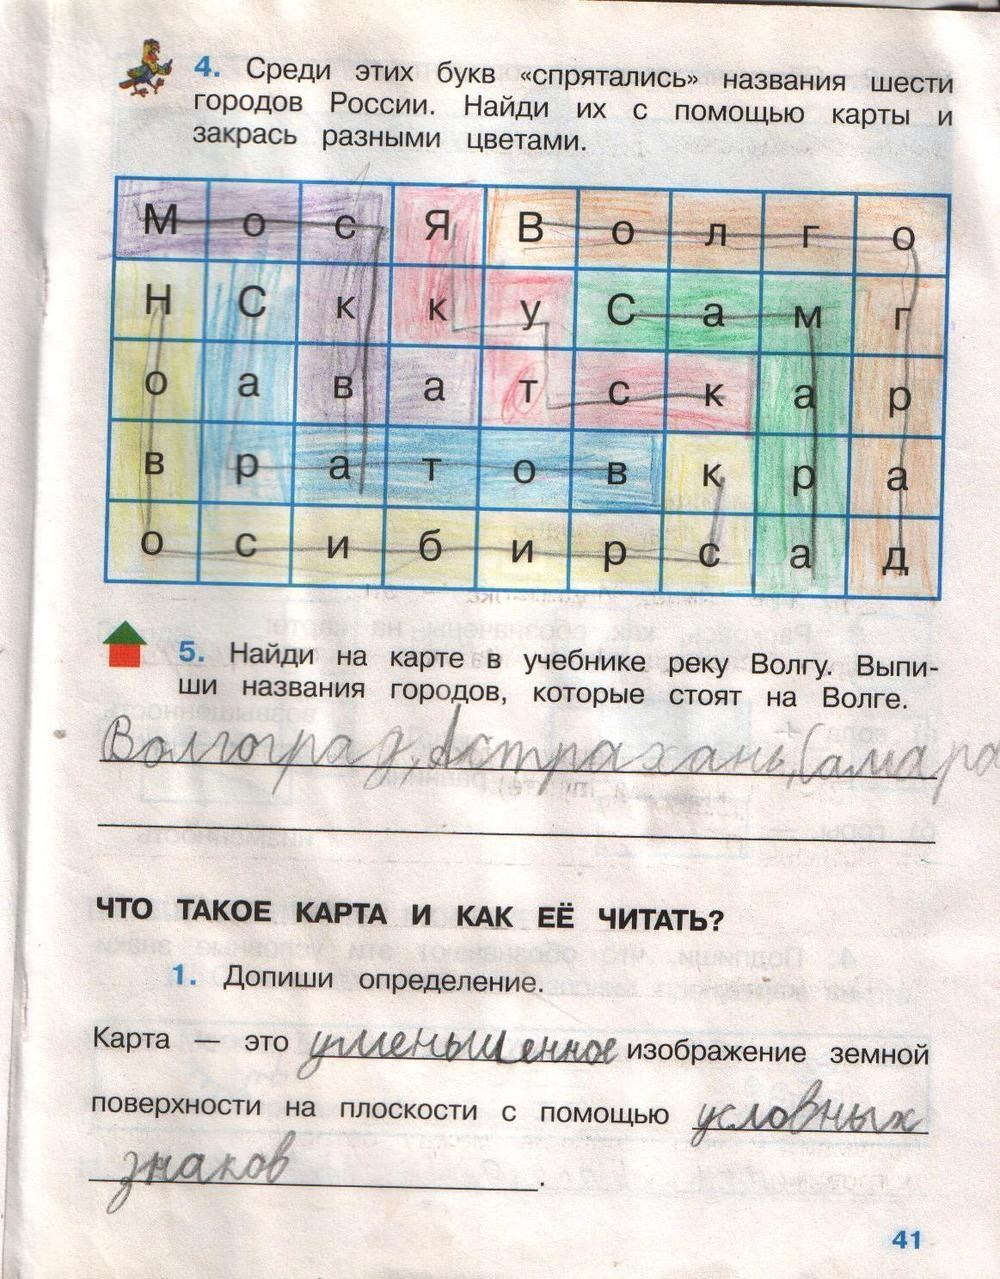 4. Среди этих букв «спрятались» названия шести
городов России. Найди их с помощью карты и
закрась разными цветами.
М о с Я В о л г о
Н С к к у С а м г
о а в а т с к а р
в р а т о в к р а
о с и б и р с а д
5. Найди на карте в учебнике реку Волгу. Выпи-
ши названия городов, которые стоят на Волге.
Волгоград, Астрахань, Самара
ЧТО ТАКОЕ КАРТА И КАК ЕЁ ЧИТАТЬ?
1. Допиши определение.
Карта — это уменьшенное изображение земной
поверхности на плоскости с помощью условных
знаков.
41